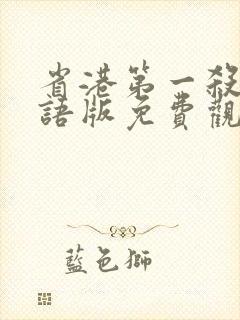 省港第一殺
語版免費觀
藍色獅